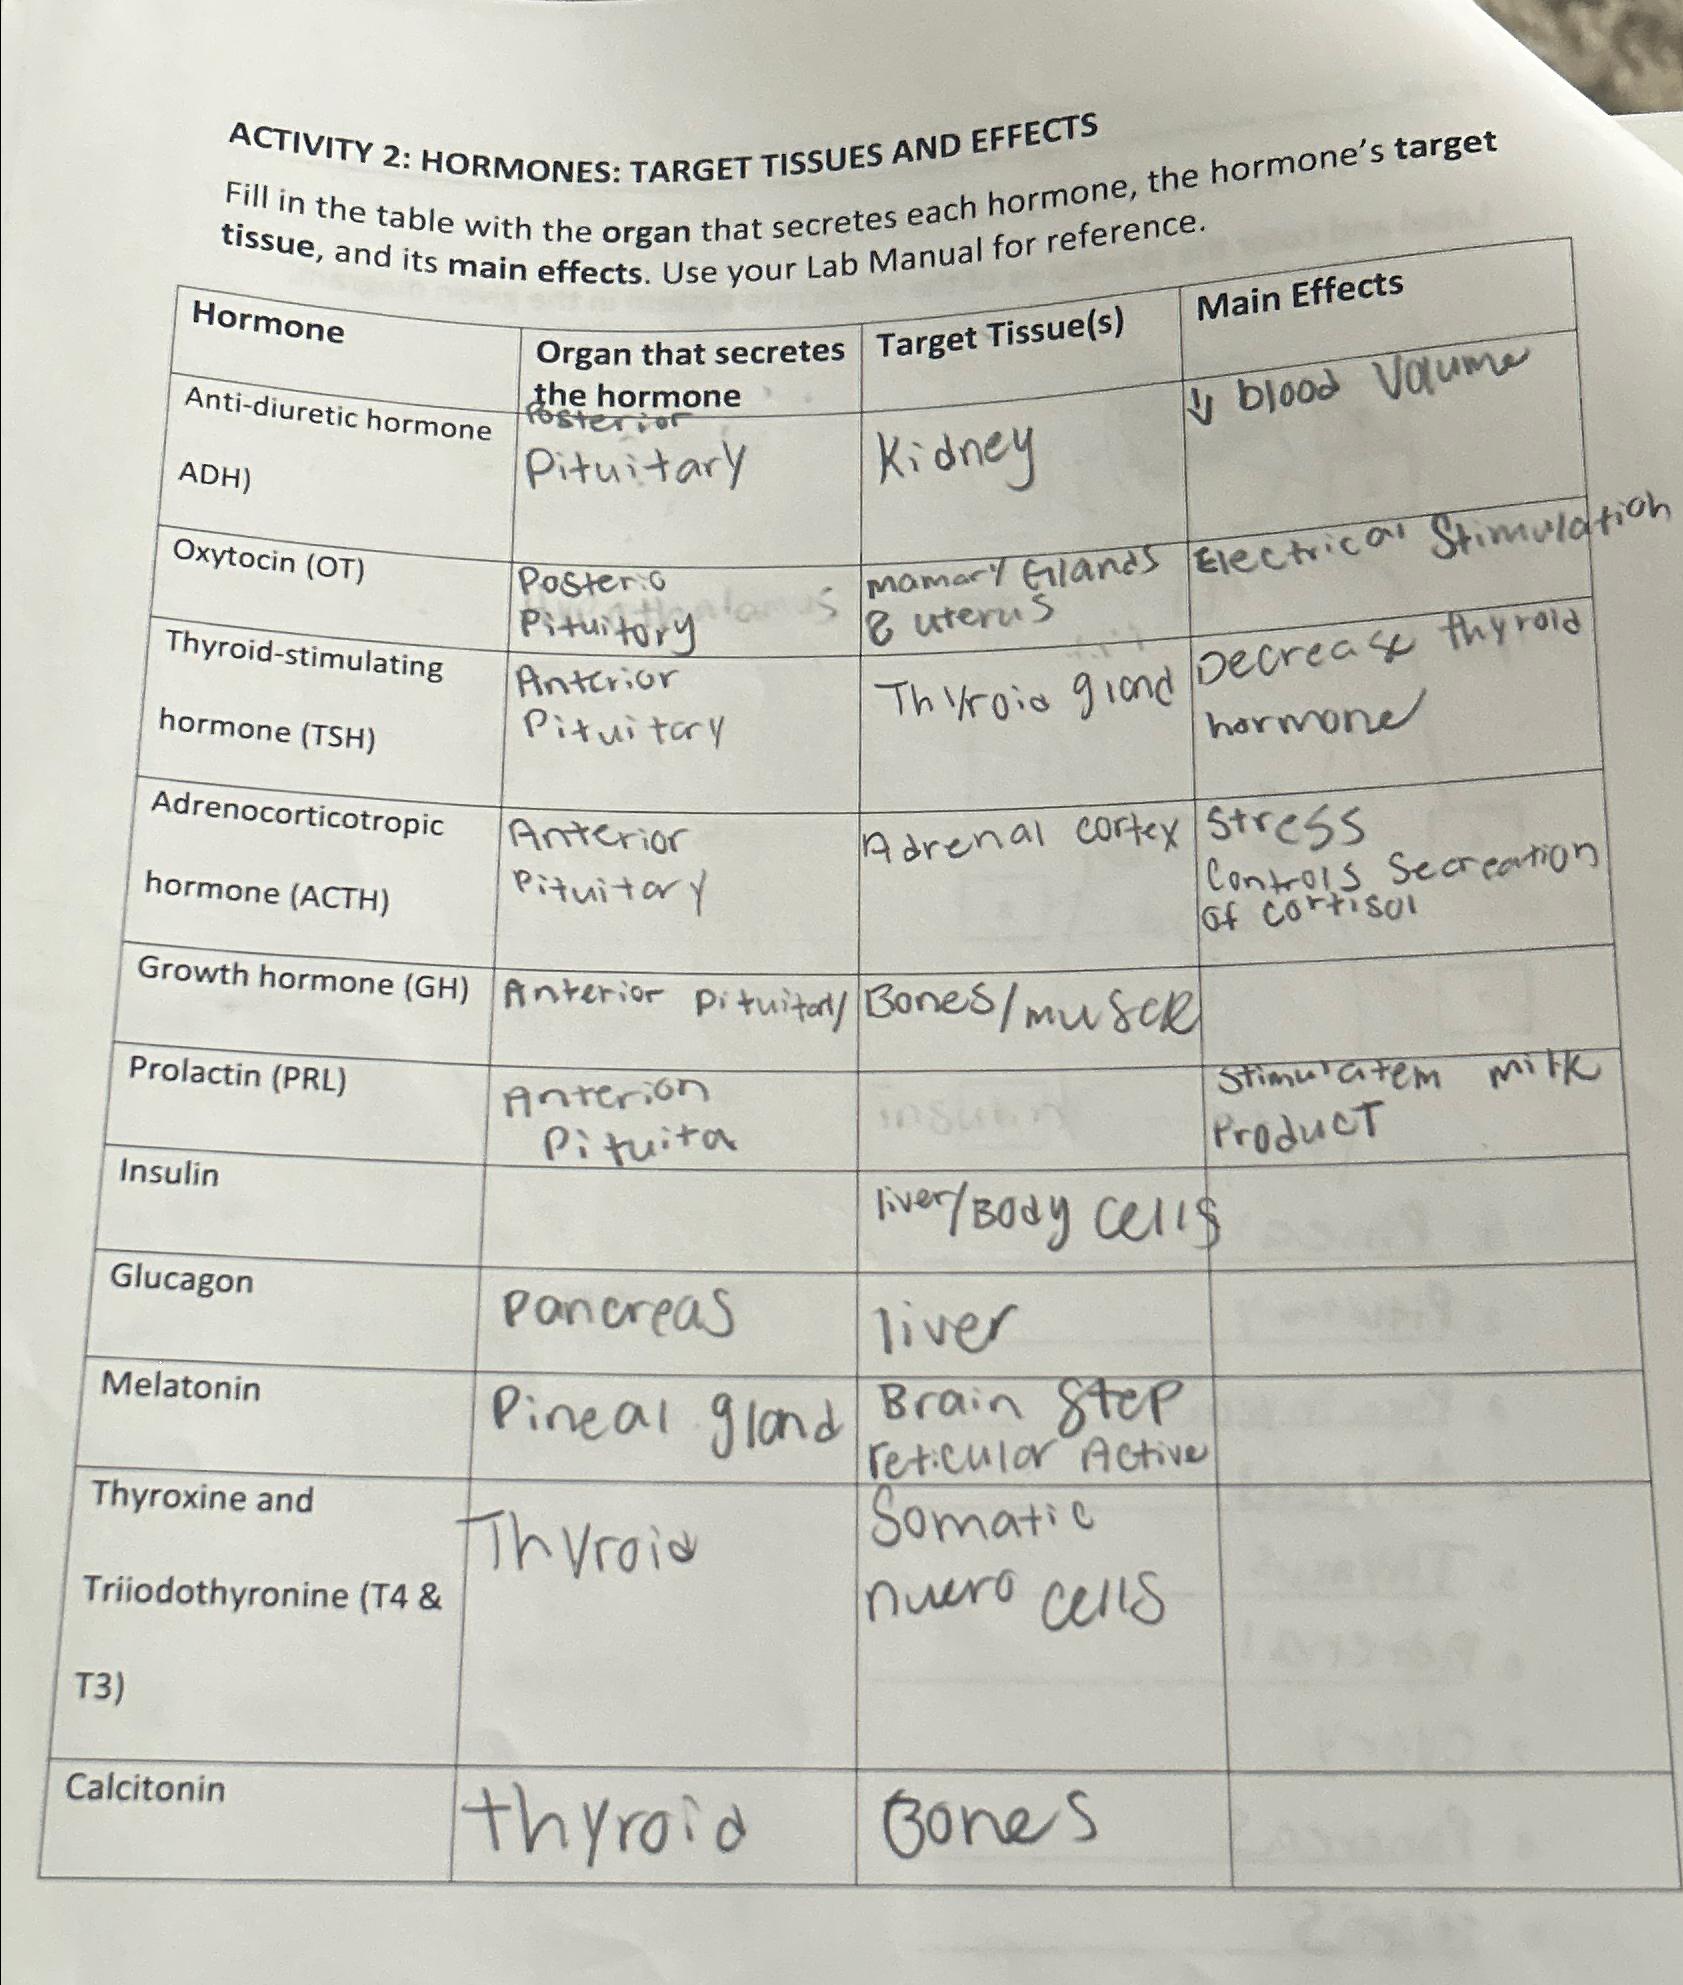 ACTIVITY 2: HORMONES: TARGET TISSUES AND EFFECTS
Fill in the table with the organ that secretes each hormone, the hormone's target
tissue, and its main effects. Use your Lab Manual for reference.
Hormone
Organ that secretes
the hormone
Target Tissue(s)
Main Effects
Anti-diuretic hormone
ADH)
Posterior
Pituitary
Kidney
↓ blood Volume
Oxytocin (OT)
Posterio
Pituitory
mamary Glands
& uterus
Electrical Stimulation
Thyroid-stimulating
hormone (TSH)
Anterior
Pituitary
Thyroid gland
Decrease thyroid
hormone
Adrenocorticotropic
hormone (ACTH)
Anterior
Pituitary
Adrenal cortex
Stress
Controls Secreation
of cortisol
Growth hormone (GH)
Anterior Pituitary
Bones/muscle
Prolactin (PRL)
Anterion
Pituita
Stimulatem milk
Product
Insulin
liver/Body cells
Glucagon
pancreas
liver
Melatonin
Pineal gland
Brain Step
reticular Active
Thyroxine and
Triiodothyronine (T4 &
T3)
Thyroid
Somatic
nuero cells
Calcitonin
thyroid
Bones